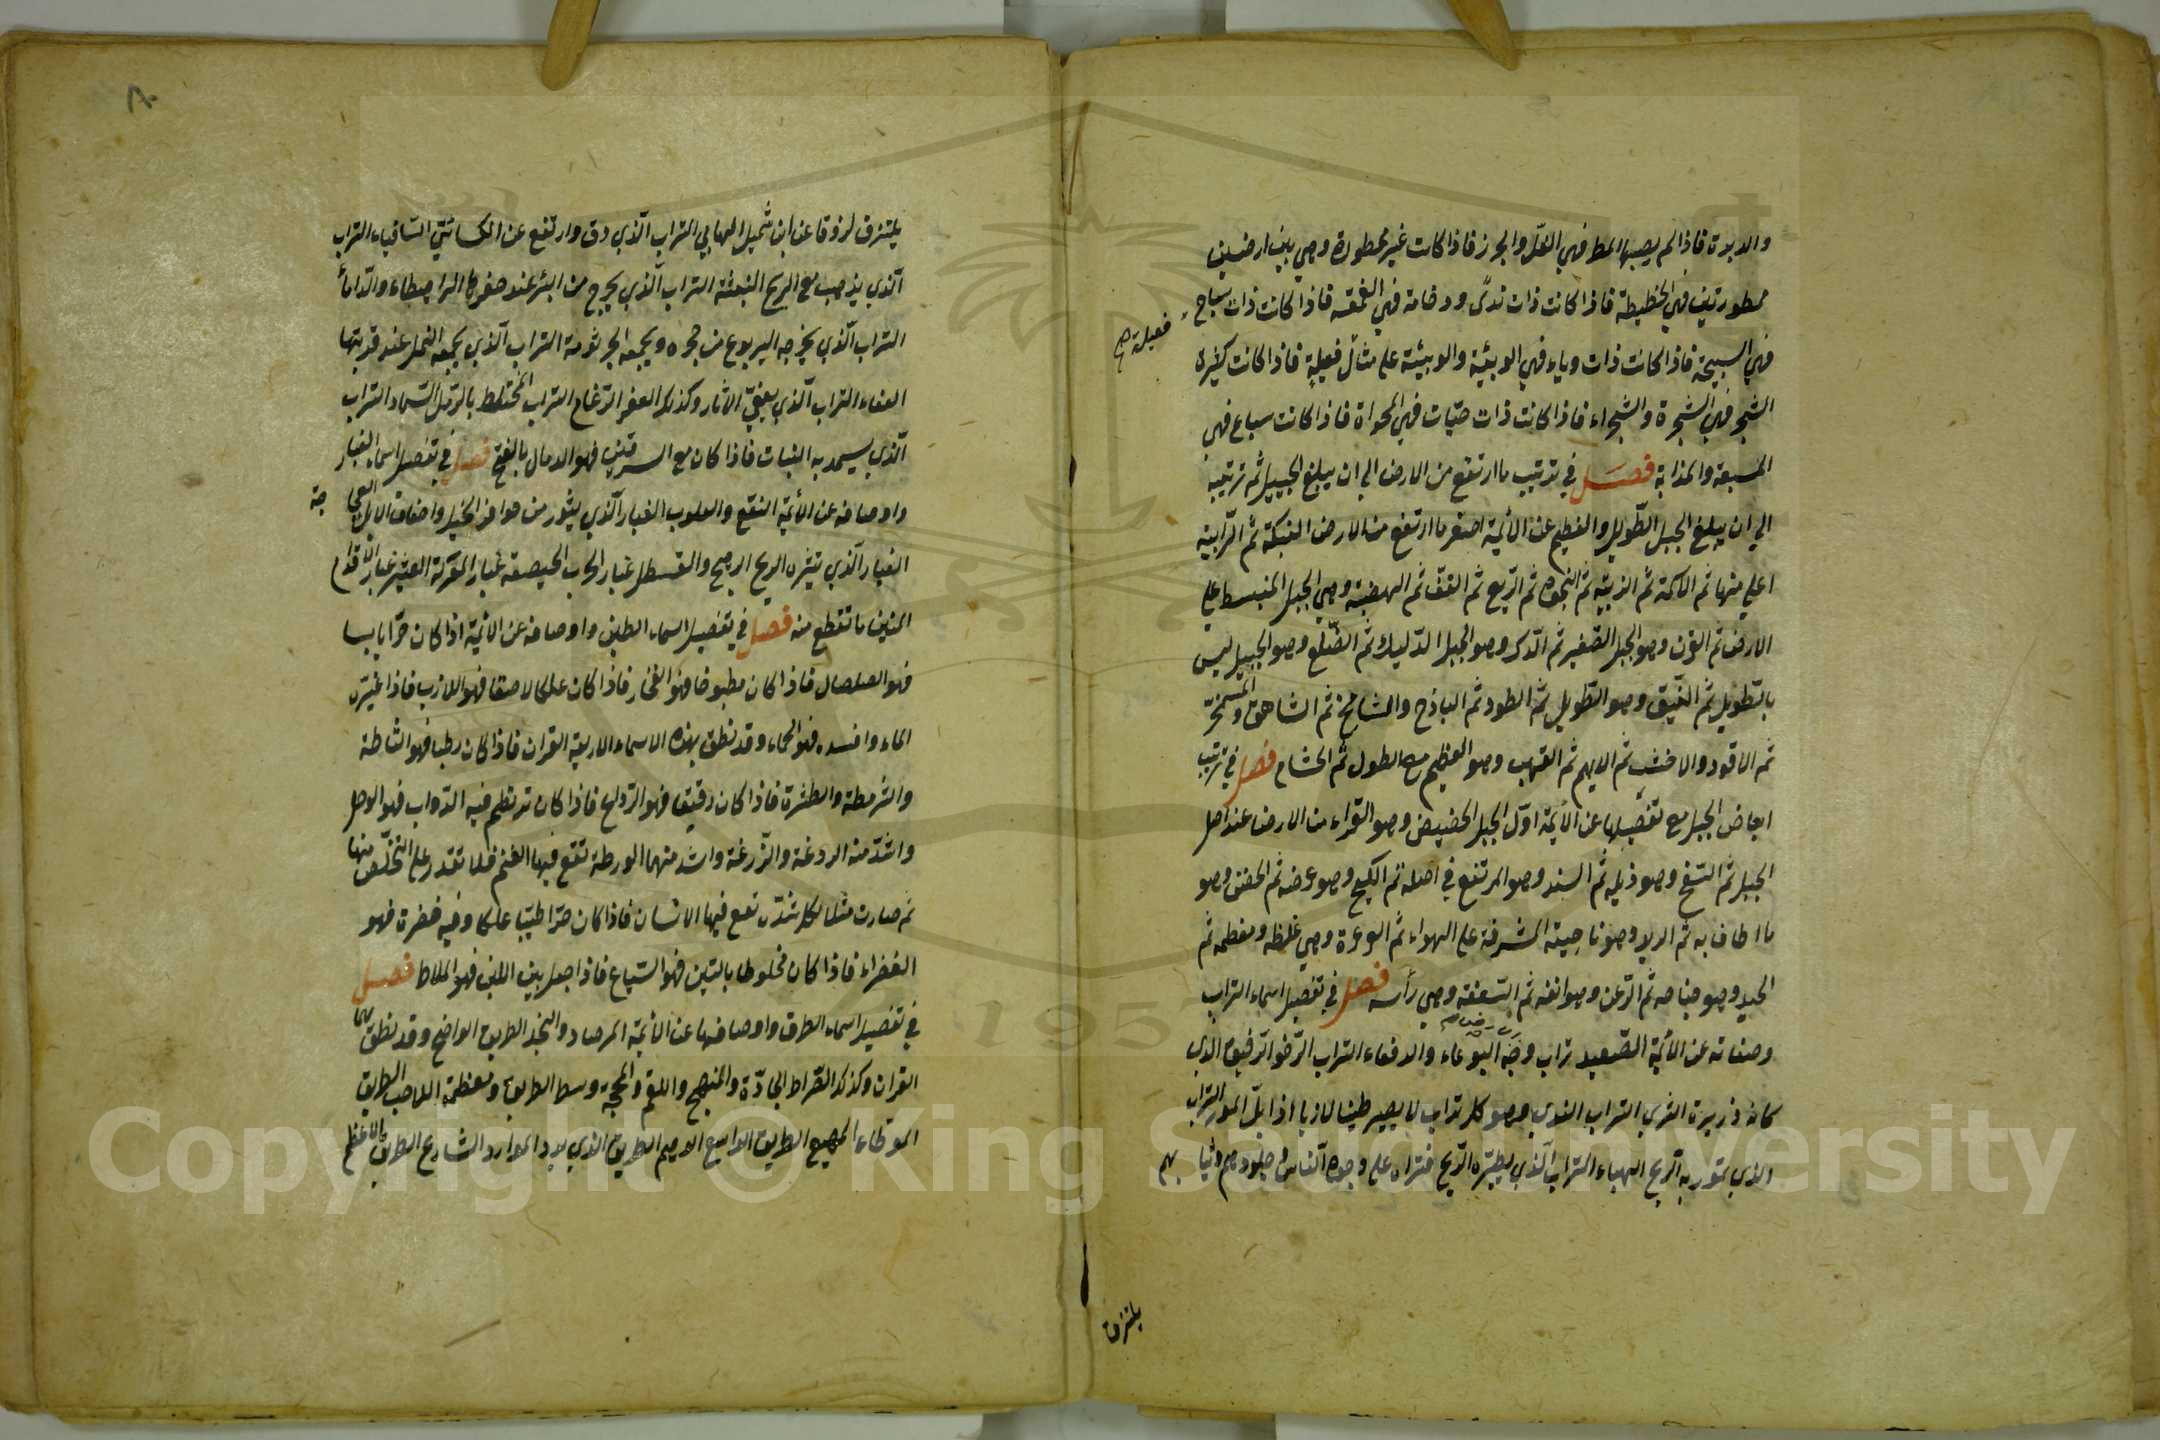 والمدبرة فاذا لم يصبها المطر فهي الفلّ والجرز فاذا كانت غير ممطورة وهي بين ارضين
ممطورتين فهي الخطيطة فاذا كانت ذات ندًى ووخامة فهي الغمقة فاذا كانت ذات سباخ
فهي السبخة فاذا كانت ذات وباء فهي الوبئية والوبيئة على مثال فعيلة فاذا كانت كثيرة
فعيلة صح
الشجر فهي الشجرة والشجراء فاذا كانت ذات حيّات فهي المحواة فاذا كانت سباع فهي
المسبعة والمذابة فصل في ترتيب ما ارتفع من الارض الي ان يبلغ الجبيل ثم ترتيبه
الي ان يبلغ الجبل الطّويل والعظيم عن الأئمة اصغر ما ارتفع من الارض النبكة ثم الرّابية
اعلي منها ثم الاكمة ثم الزبية ثم النجوة ثم الرّيع ثم القفّ ثم الهضبة وهي الجبل المنبسط علي
الارض ثم القرن وهو الجبل الصّغير ثم الدّك وهو الجبل الذّليل ثم الضّلع وهو الجبيل ليس
بالطّويل ثم النّيق وهو الطّويل ثم الطود ثم الباذخ والشامخ ثم الشاهق والمشمخرّ
ثم الاقود والاخشب ثم الايهم ثم القهب وهو العظيم مع الطول ثم الخشام فصل في ترتيب
ابعاض الجبل مع تفصيلها عن الأئمة اوّل الجبل الحضيض وهو القرار من الارض عند اصل
الجبل ثم السّفح وهو ذيله ثم السند وهو المرتفع في اصله ثم الكيح وهو عرضه ثم الحضن وهو
ما اطاف به ثم الريد وهو ناحيته المشرفة على الهواء ثم العرعرة وهي غلظه ومعظمه ثم
الحيد وهو جناحه ثم الرّعن وهو انفه ثم الشعفة وهي رأسه فصل في تفصيل اسماء التراب
وصفاته عن الأئمة الصّعيد تراب وجه البوغاء والدقعاء التراب الرّخو الرّقيق الذي
كانه ذريرة الثري التراب الندي وهو كل تراب لا يصير طينا لازبا اذا بلّ المور التراب
الذي تمور به الريح الهباء التراب الّذي يطيّره الرّيح فتراه على وجوه النّاس وجلودهم وثيابهم
يلتزق
٨٠
يلتزق لزوقا عن ابن شميل الهابي التراب الّذي دق وارتفع عن الكسائيّ السّافياء التراب
الّذي يذهب مع الريح النبيثة التراب الّذي يخرج من البئر عند حفرها الراهطاء والدّامّاء
التراب الّذي يخرجه اليربوع من جحره ويجمعه الجرثومة التراب الّذي يجمعه النمل عند قريتها
العفاء التراب الّذي يعفيّ الاثار وكذلك العفر الرّغام التراب المختلط بالرّمل السّماد التراب
الّذي يسمد به النبات فاذا كان مع السرقين فهو الدمال بالفتح فصل في تفصيل اسماء الغبار
واوصافه عن الأئمة النقع والعكوب الغبار الّذي يثور من حوافر الخيل واخفاف الابل العجاجة
الغبار الّذي تثيره الريح الرهج والقسطل غبار الحرب الخيضعة غبار المعركة العثير غبار الاقدام
المنين ما تقطع منه فصل في تفصيل اسماء الطين واوصافه عن الائمة اذا كان حرّا يابسا
فهو الصلصال فاذا كان مطبوخا فهو الفخار فاذا كان علكا لاصقا فهو اللازب فاذا غيّره
الماء وافسده فهو الحماء وقد نطق بهذه الاسماء الاربعة القران فاذا كان رطبا فهو الثاطة
والثرمطة والطثرة فاذا كان رقيقا فهو الرّداغ فاذا كان ترتطم فيه الدّواب فهو الوحل
واشدّ منه الردغة والرّزغة واشد منهما الورطة تقع فيها الغنم فلا تقدر على التخلّص منها
ثم صارت مثلا لكل شدّة يقع فيها الانسان فاذا كان حرّا طيّبا علكا وفيه خضرة فهو
الغضراء فاذا كان مخلوطا بالتبن فهو السّياع فاذا جعل بين اللبن فهو الملاط فصل
في تفصيل اسماء الطرق واوصافها عن الأئمة المرصاد والنجد الطريق الواضح وقد نطق بهما
القران وكذلك الصّراط الجادّة والمنهج واللقم والمحجة وسط الطريق ومعظمه اللاحب الطريق
الموطاء المهيع الطريق الواسع الوهم الطريق الذي يرد الموارد الشارع الطريق الاعظم
Copyright © King Saud University
1957